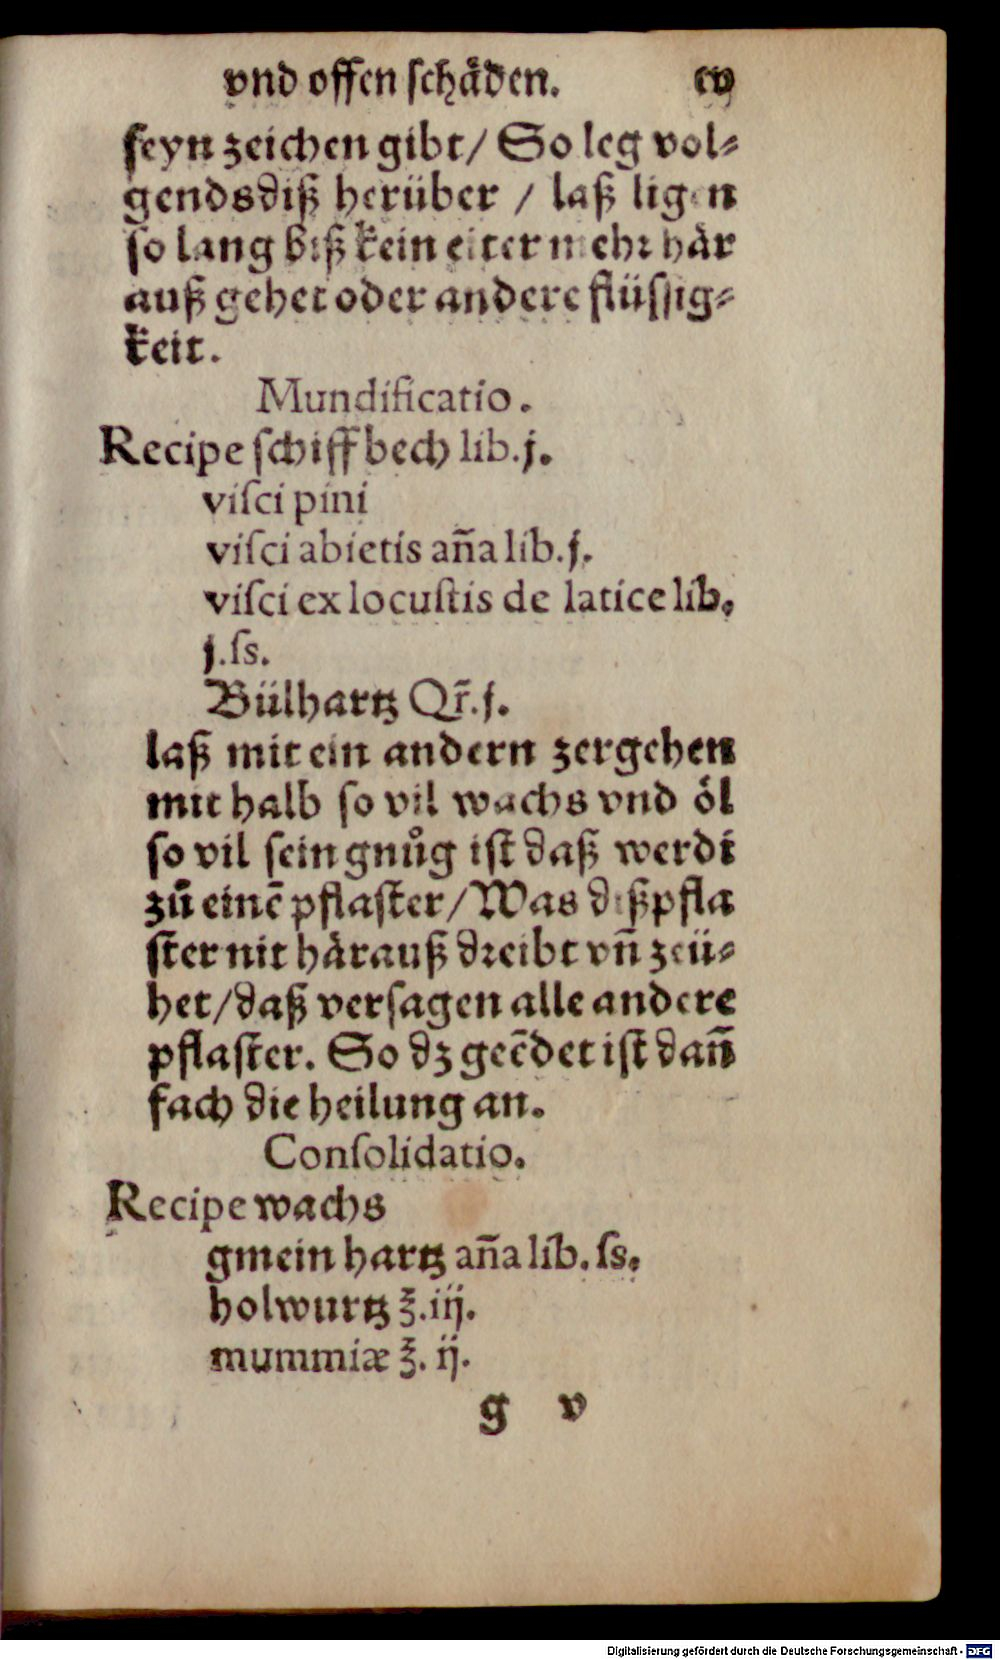 vnd offen schäden. cv
seyn zeichen gibt/ So leg vol⸗
gendsdiß herüber / laß ligen
so lang biß kein eiter mehr här
auß gehet oder andere flüssig⸗
keit.
Mundificatio.
Recipe schiffbech lib.j.
visci pini
visci abietis aña lib.ſ.
visci ex locustis de latice lib.
j.ſs.
Bülhartz Qr̃.ſ.
laß mit ein andern zergehen
mit halb so vil wachs vnd öl
so vil sein gnůg ist daß werdi
zů einẽ pflaster/Was dißpfla
ster nit härauß dreibt vñ zeü⸗
het/daß versagen alle andere
pflaster. So dz geẽdet ist dañ
fach die heilung an.
Consolidatio.
Recipe wachs
gmein hartz aña lib. ſs.
holwurtz ℥.iij.
mummiæ ℥. ij.
g v
Digitalisierung gefördert durch die Deutsche Forschungsgemeinschaft - DFG